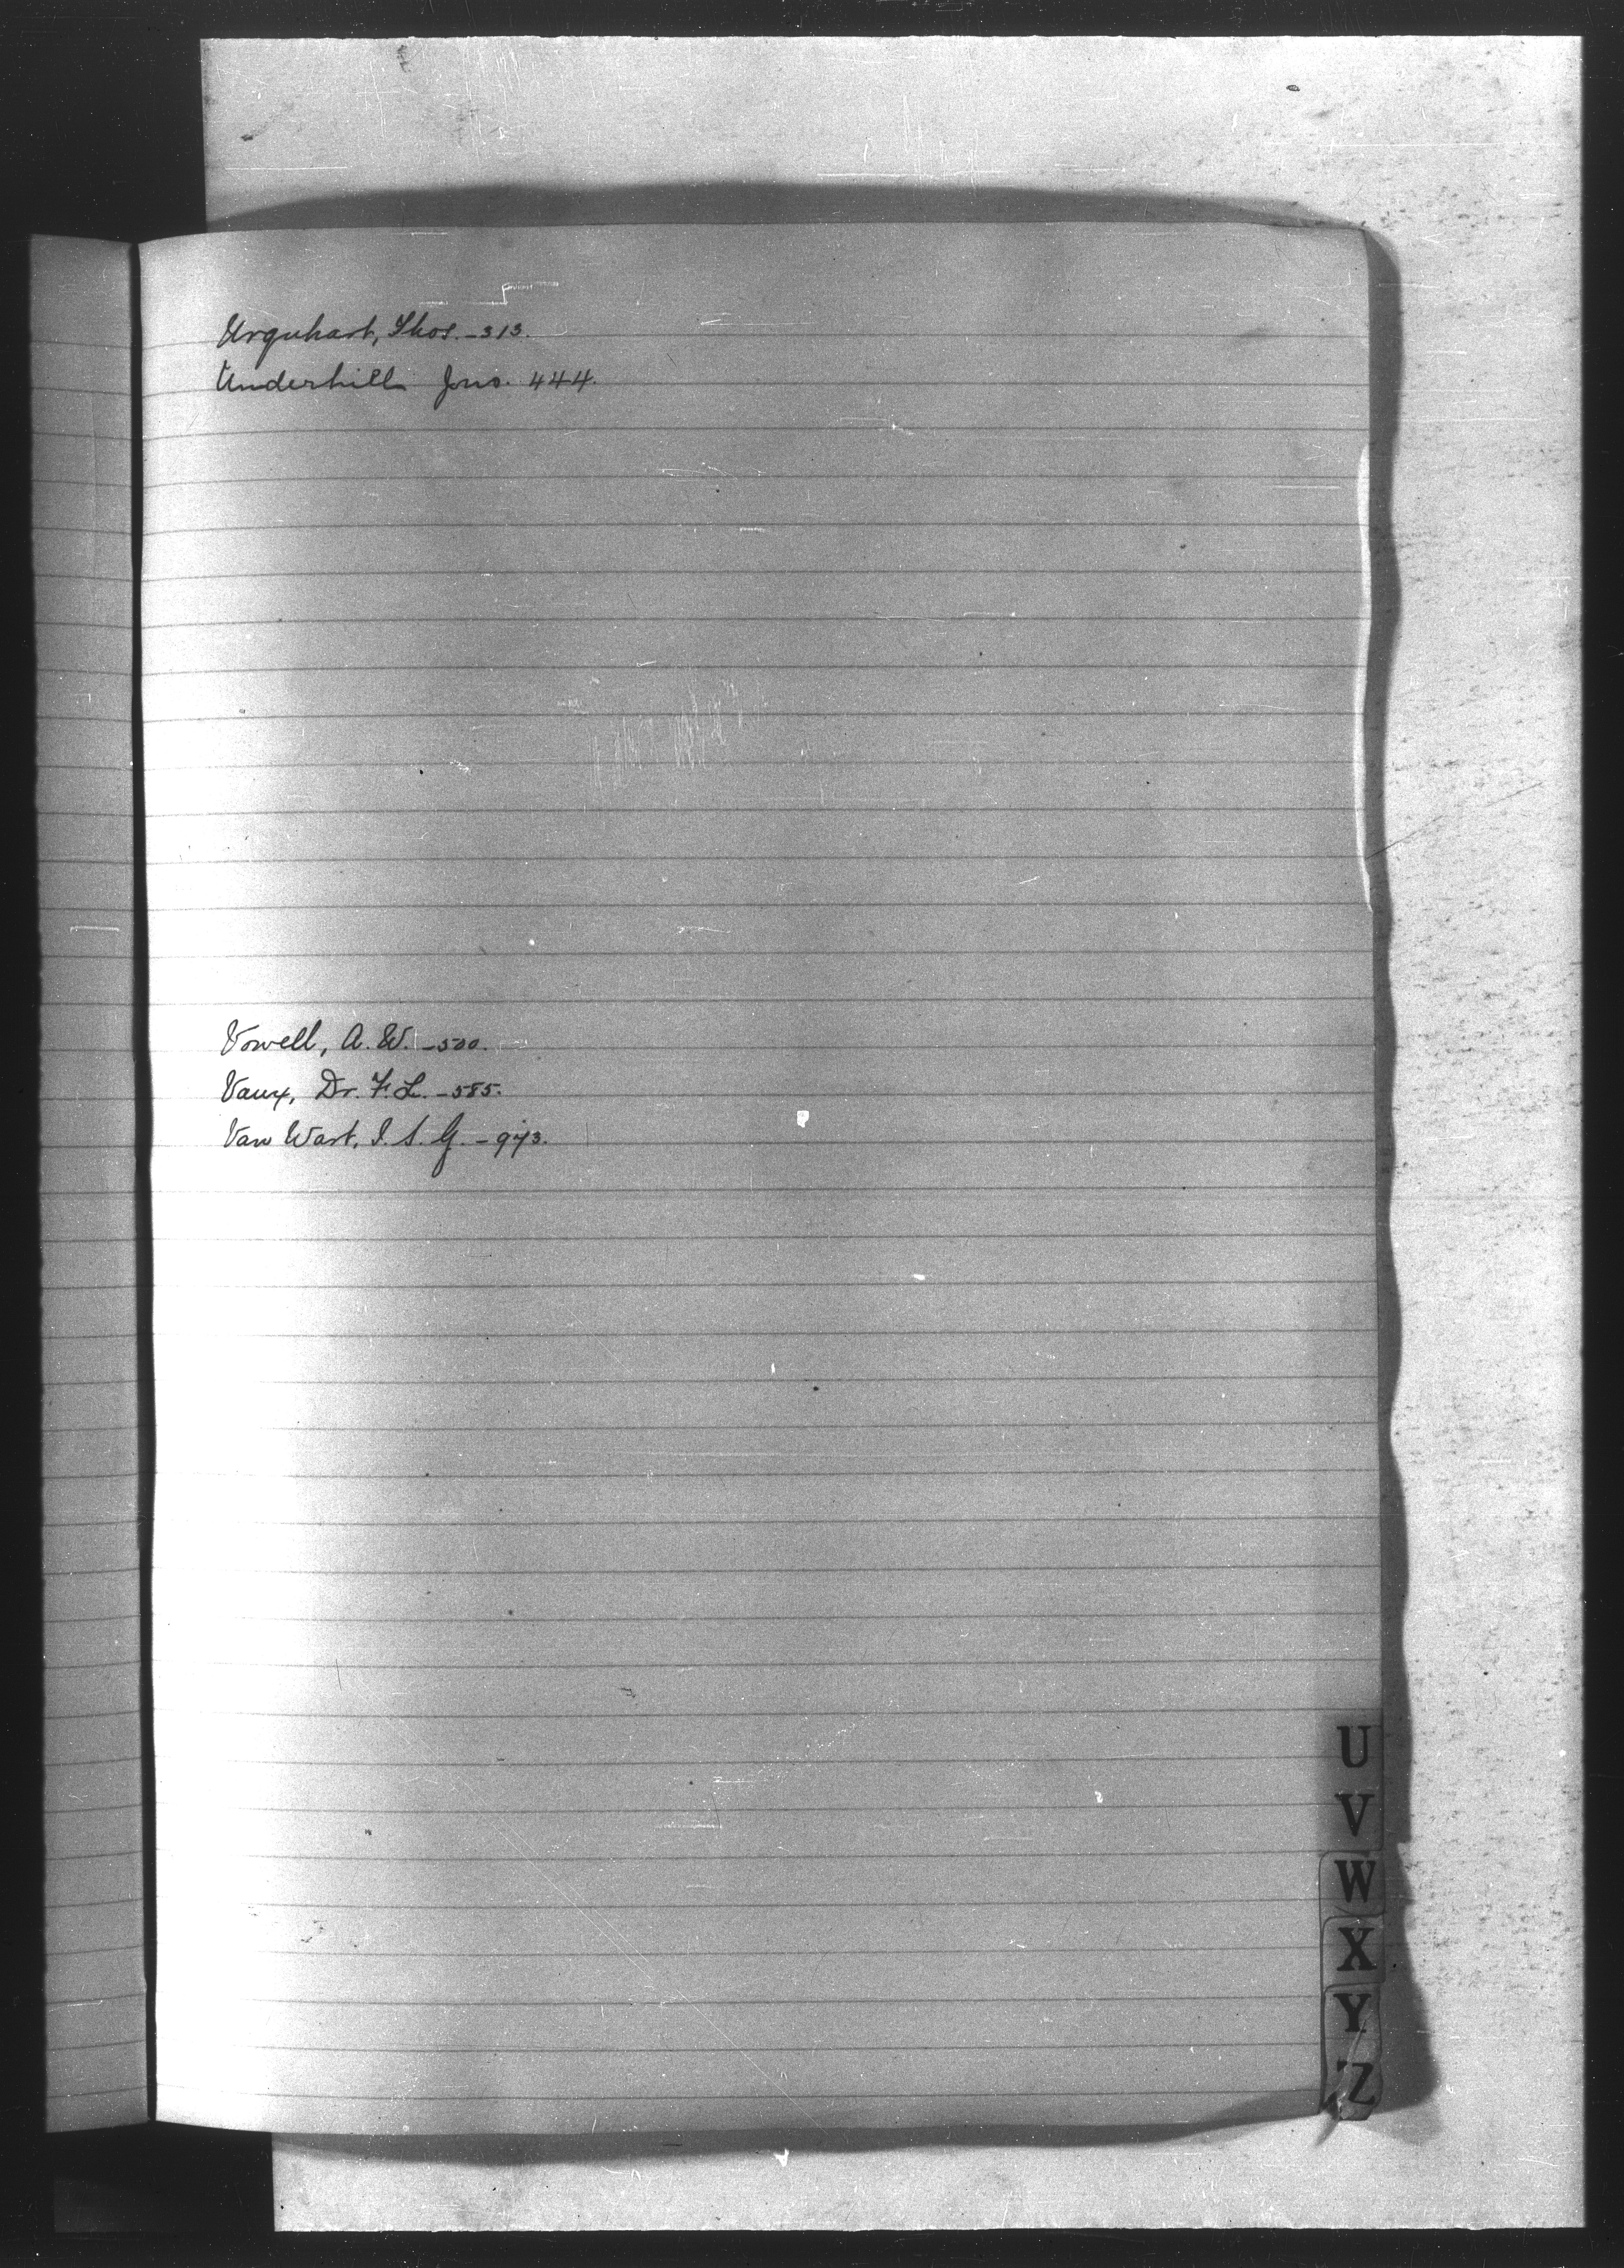 Urquhart, Thos. - 313.
Underhill Jno. 444.
Vowell, A. W. - 500.
Vaux, Dr. F. L. - 585.
Van Wart, I. S. G. - 973.
U
V
W
X
Y
Z